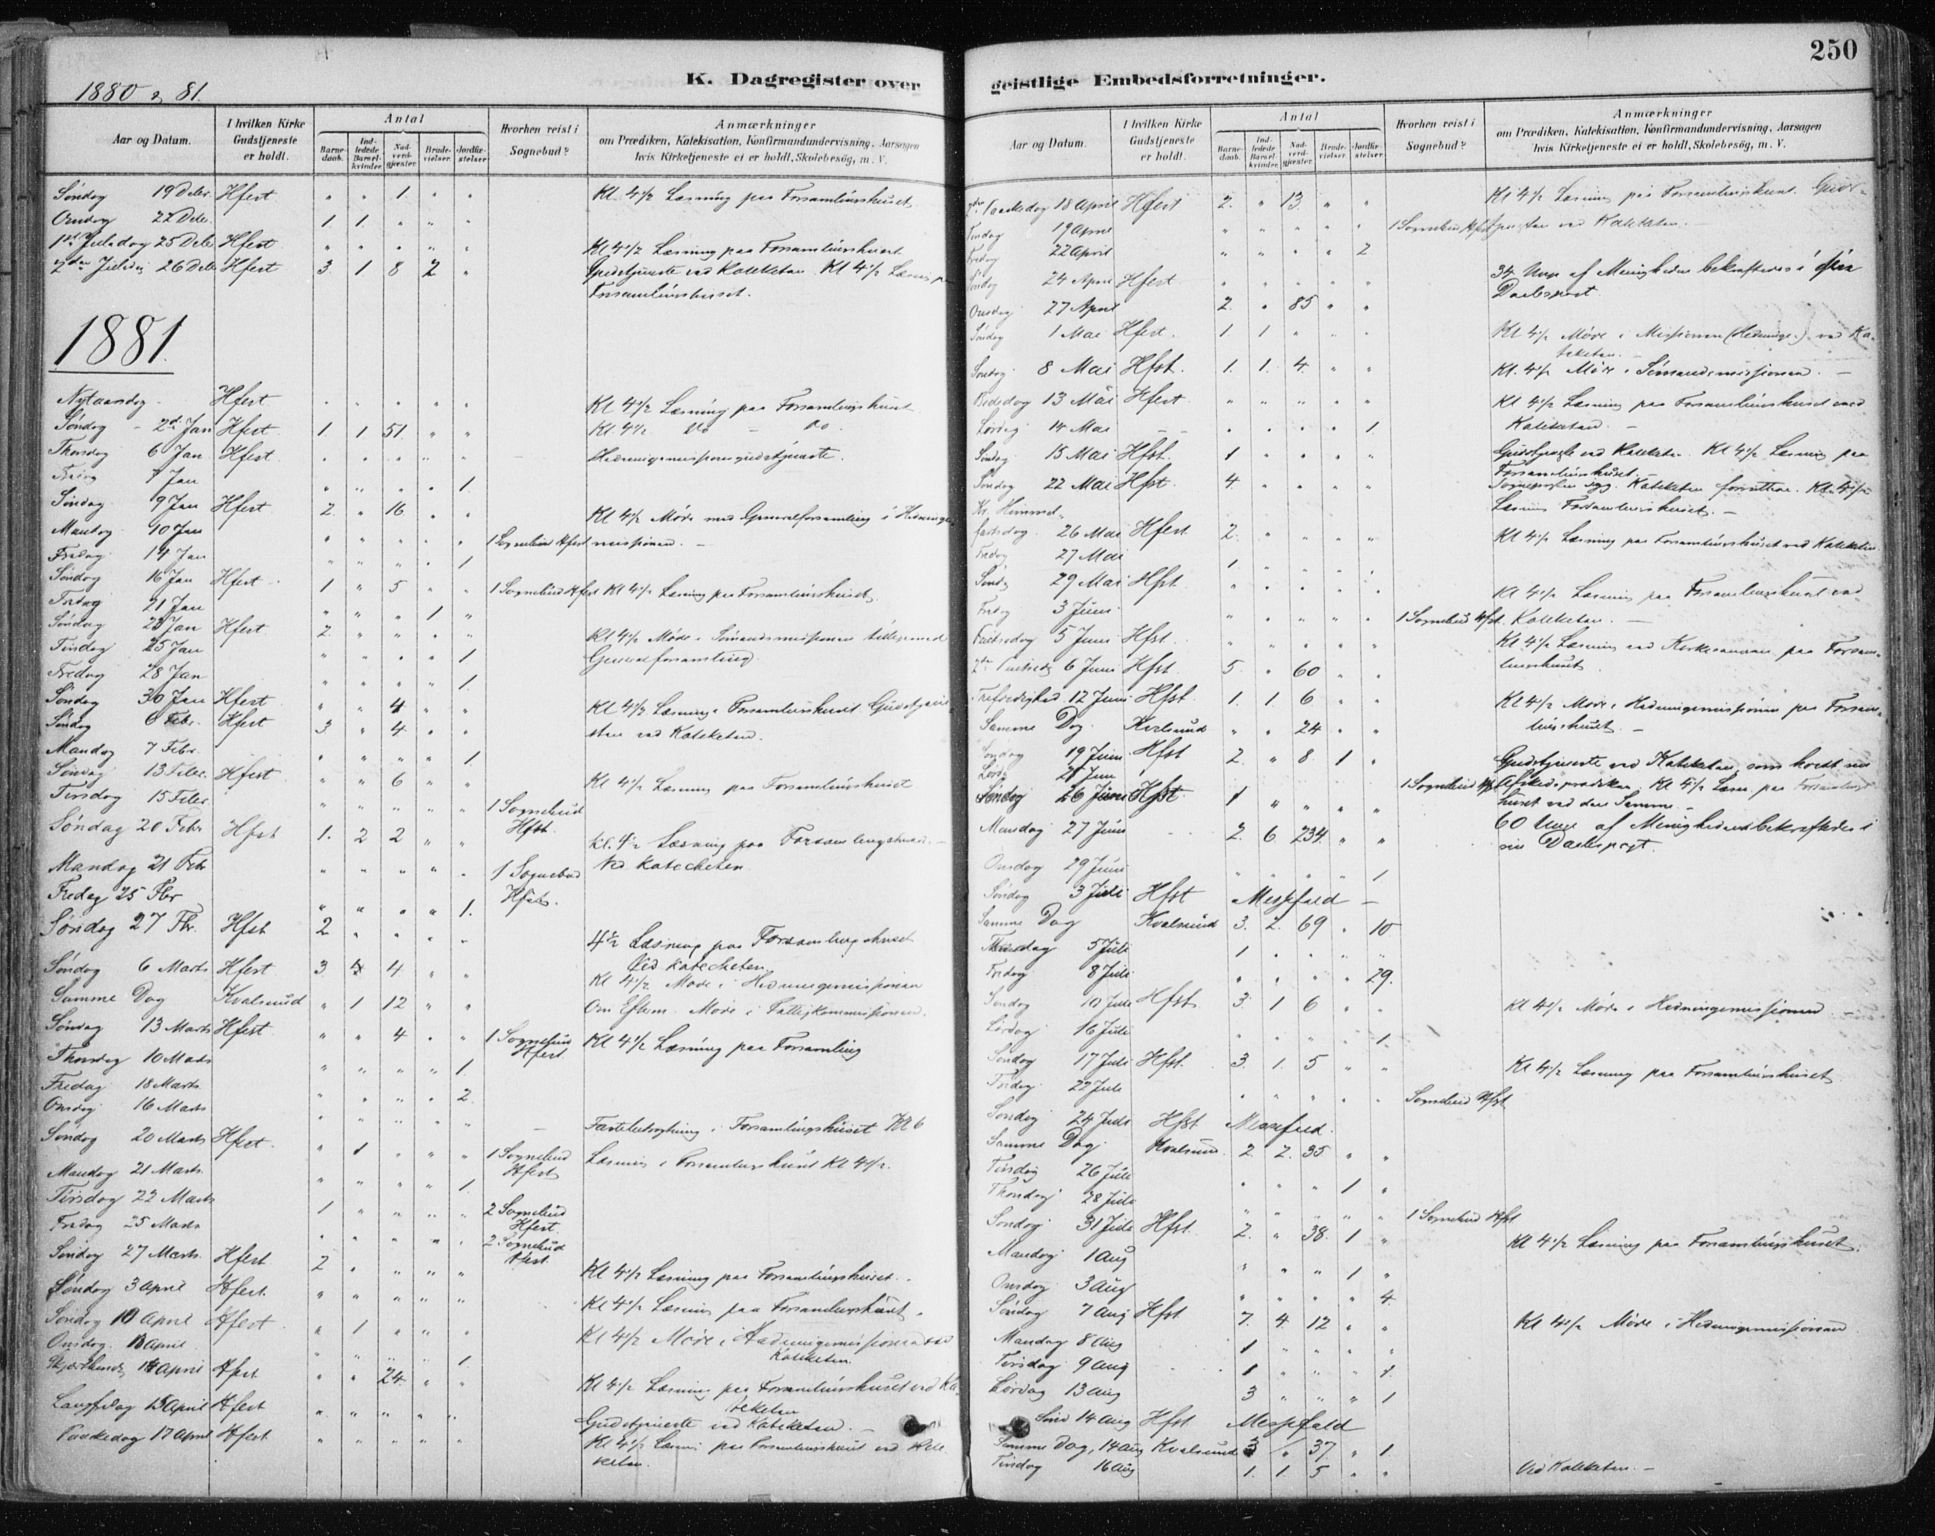 1880 & 81.
K. Dagregister over
Aar og Datum.
I hvilken Kirke Gudstjeneste er holdt.
Antal
Barne-daab.
Ind-ledede Barsel-kvinder.
Nad-verd-gjester.
Brude-vielser.
Jordfæ-stelser.
Hvorhen reist i Sognebud?
Anmærkninger
om Prædiken, Katekisation, Konfirmandundervisning, Aarsagen
hvis Kirketjeneste ei er holdt, Skolebesøg, m. V.
Søndag 19 Debr. Hfest " " 1 " " Kl 4 1/2 Læsning paa Forsamlingshuset
Onsdag 22 Debr. 1 1 " " "
1ste Juledag 25 Debr Hfest " " " " " Kl 4 1/2 Læsning paa Forsamlingshuset
2den Juledag 26 Debr Hfest 3 1 8 2 " Gudstjeneste ved Kateketen. Kl 4 1/2 Læsn. paa
Forsamlingshuset.
1881.
Nytaarsdag - Hfest " " " " " Kl 4 1/2 Læsning paa Forsamlingshuset
Søndag - 2d Jan Hfest 1 1 51 " " Kl. 4 1/2 Do - Do.
Thorsdag 6 Jan Hfest " " " " " Hedningemissionsgudstjeneste.
Fredag 7 Jan " " " " 1.
Søndag 9 Jan Hfest 2 " 16 " " Kl 4 1/2 Møde med Generalforsamling i Hedninge-
Mandag 10 Jan " " " " " 1 Sognebud Hfest missionen. -
Fredag 14 Jan " " " " 1
Søndag 16 Jan Hfest 1 " 5 " " 1 Sognebud Hfest Kl 4 1/2 Læsning paa Forsamlingshuset
Fredag 21 Jan " " " 1 "
Søndag 23 Jan Hfest 2 " " " " Kl 4 1/2 Møde i Sømandsmissionen tilligemed
Tirsdag 25 Jan " " " " 1. Generalforsamling.
Fredag 28 Jan " " " " 1.
Søndag 30 Jan Hfest " " 4 " " Kl 4 1/2 Læsning i Forsamlingshuset. Gudstjene-
Søndag 6 Febr. Hfest 3 " 4 " " sten ved Kateketen.
Mandag 7 Febr. " " " " 1
Søndag 13 Febr. Hfest " " 6 " " Kl 4 1/2 Læsning paa Forsamlingshuset
Tirsdag 15 Febr. " " " " " 1 Sognebud Hfst.
Søndag 20 Febr Hfst 1. 2 2 " " Kl. 4 1/2 Læsning paa Forsamlingshuset. -
Mandag 21 Febr " " " " " 1 Sognebud Hfst. Ved Katecheten
Fredag 25 Fbr " " " " 1.
Søndag 27 Fbr. Hfst 2 " " " " 4 1/2 Læsning paa Forsamlingshuset
Ved Katecheten
Søndag 6 Marts Hfest 3 4 4 " " Kl 4 1/2 Møde i Hedningemissionen
Samme Dag Kvalsund " 1 12 " " Om Efterm. Møde i Fattigkommissionen.
Søndag 13 Marts Hfest " " 4 " " 1 Sognebud Hfest Kl 4 1/2 Læsning paa Forsamling
Thorsdag 10 Marts " " " " 1.
Fredag 18 Marts " " " " 2.
Onsdag 16 Marts " " " " " - Fastebetragtning i Forsamlingshuset Kl 6
Søndag 20 Marts Hfest. " 1 " " " 1 Sognebud Hfest Læsning i Forsamlingshuset Kl 4 1/2.
Mandag 21 Marts " " " " 1.
Tirsdag 22 Marts 1 " " " " 2 Sognebud Hfest.
Fredag 25 Marts " " " " " 2 Sognebud Hfest.
Søndag 27 Marts. Hfest 2 " " " " Kl 4 1/2 Læsning paa Forsamlingshuset.
Søndag 3 April Hfest. " " " " " Kl 4 1/2 Læsning paa Forsamlingshuset.
Søndag 10 April Hfest. " 1 " " " Kl 4 1/2 Møde i Hedningemissionen ved
Kateketen.
Onsdag 13 April " " " " 1
Skjærthorsd. 14 April Hfest " " 24 " " Kl 4 1/2 Læsning paa Forsamlingshuset ved Ka-
teketen
Langfredag 15 April Hfest " " " " " Gudstjeneste ved Kateketen. -
Paaskedag 17 April Hfest " " " " " Kl 4 1/2 Læsn. paa Forsamlingshuset ved Kate-
keten.
250
geistlige Embedsforretninger.
Aar og Datum.
I hvilken Kirke Gudstjeneste er holdt.
Antal
Barne-daab.
Ind-ledede Barsel-kvinder.
Nad-verd-gjester.
Brude-vielser.
Jordfæ-stelser.
Hvorhen reist i Sognebud?
Anmærkninger
om Prædiken, Katekisation, Konfirmandundervisning, Aarsagen
hvis Kirketjeneste ei er holdt, Skolebesøg, m. V.
2den Paaskedag 18 April Hfest 2. " 13. " " Kl 4 1/2 Læsning paa Forsamlingshuset. Gud-
Tirsdag 19 April " " " " " 1 Sognebud Hfst tjenesten ved Kateketen. -
Fredag 22 April " " " " 2
Søndag 24 April Hfest " " " " " 34 Unge af Menigheden bekræftedes i sin
Onsdag 27 April 2. " 85 " " Daabspagt.
Søndag 1 Mai Hfest. 1 1 " " " Kl 4 1/2 Møde i Missionen (Hedninge-) ved Ka-
teketen. -
Søndag 8 Mai Hfst. 1. 1. 4. " " Kl. 4 1/2 Møde i Sømandsmissionen. -
Bededag 13 Mai Hfest " " " " " Kl 4 1/2 Læsning paa Forsamlingshuset ved
Lørdag 14 Mai - - " " " " 1 Kateketen. -
Søndag 15 Mai Hfst. 1 " " " " Gudstjeneste ved Kateketen. Kl 4 1/2 Læsning paa
Forsamlingshuset. -
Søndag 22 Mai Hfst 4. " " " " Sognepresten syg. Kateketen forrettede. Kl. 4 1/2
Kr. Himmel- Læsning Forsamlingshuset. -
fartsdag 26 Mai Hfest 2. " " " " Kl 4 1/2 Læsning paa Forsamlingshuset ved Kateketen
Fredag 27 Mai 1 " " " "
Søndag 29 Mai Hfst. " " " " " Kl 4 1/2 Læsning paa Forsamlingshuset ved
Fredag 3 Juni " " " " " 1 Sognebud Hfst. Kateketen. -
Pintsedag 5 Juni Hfst. " " " " " Kl 4 1/2 Læsning ved Kirkesanger paa Forsam-
2den Pintsed. 6 Juni Hfst. 5. " 60 " " lingshuset.
Trefoldighed 12 Juni Hfst. 1. 1 6 " " Kl 4 1/2 Møde i Hedningemissionen paa Forsam-
Samme Dag Kvalsund " " 24 " " lingshuset. -
Søndag 19 Juni Hfst 2. " 8. 1 " Gudstjeneste ved Kateketen, som holdt sin
Lørdag 25 Juni " 1 Sognebud Hfst Afskedsprædiken. Kl 4 1/2 Læsn. paa Forsamlings-
Søndag 26 Juni Hfst. 1 " " " " huset ved den Samme. -
Mandag 27 Juni 2. 6. 234. " " 60 Unge af Menigheden bekræftedes i
Onsdag 29 Juni " " " " 1 sin Daabspagt.
Søndag 3 Juli Hfst Messefald -
Samme Dag Kvalsund 3. 2. 69 " 10
Tirsdag 5 Juli 1 " " " "
Fredag 8 Juli " " " " 29.
Søndag 10 Juli Hfst 3. 1 6 " " Kl 4 1/2 Møde i Hedningemissionen. -
Lørdag 16 Juli " " " " 1.
Søndag 17 Juli Hfst. 3. 1. 5 " " Kl 4 1/2 Læsning paa Forsamlingshuset
Fredag 22 Juli " " " " " Sognebud Hfst
Søndag 24 Juli Hfst Messefald.
Samme Dag. Kvalsund. 2. 2. 35 " "
Tirsdag 26 Juli " " " 1 "
Thorsdag 28 Juli " " " " " 1 Sognebud Hfst
Søndag 31 Juli Hfst. 2. " 38. 1 " Kl 4 1/2 Læsning paa Forsamlingshuset.
Mandag 1 Aug " " " 1 "
Onsdag 3 Aug " " " " 4.
Søndag 7 Aug Hfst 7. 4. 12 " " Kl 4 1/2 Møde i Hedningemissionen
Mandag 8 Aug 1 " " " "
Tirsdag 9 Aug 1 " " " 1.
Lørdag 13 Aug 3 " " " 1
Sønd 14 Aug Hfst Messefald
Samme Dag, 14 Aug Kvalsund 3 / 37 " 1.
Tirsdag 16 Aug 1. 1. 5 " " Ved Kateketen. -